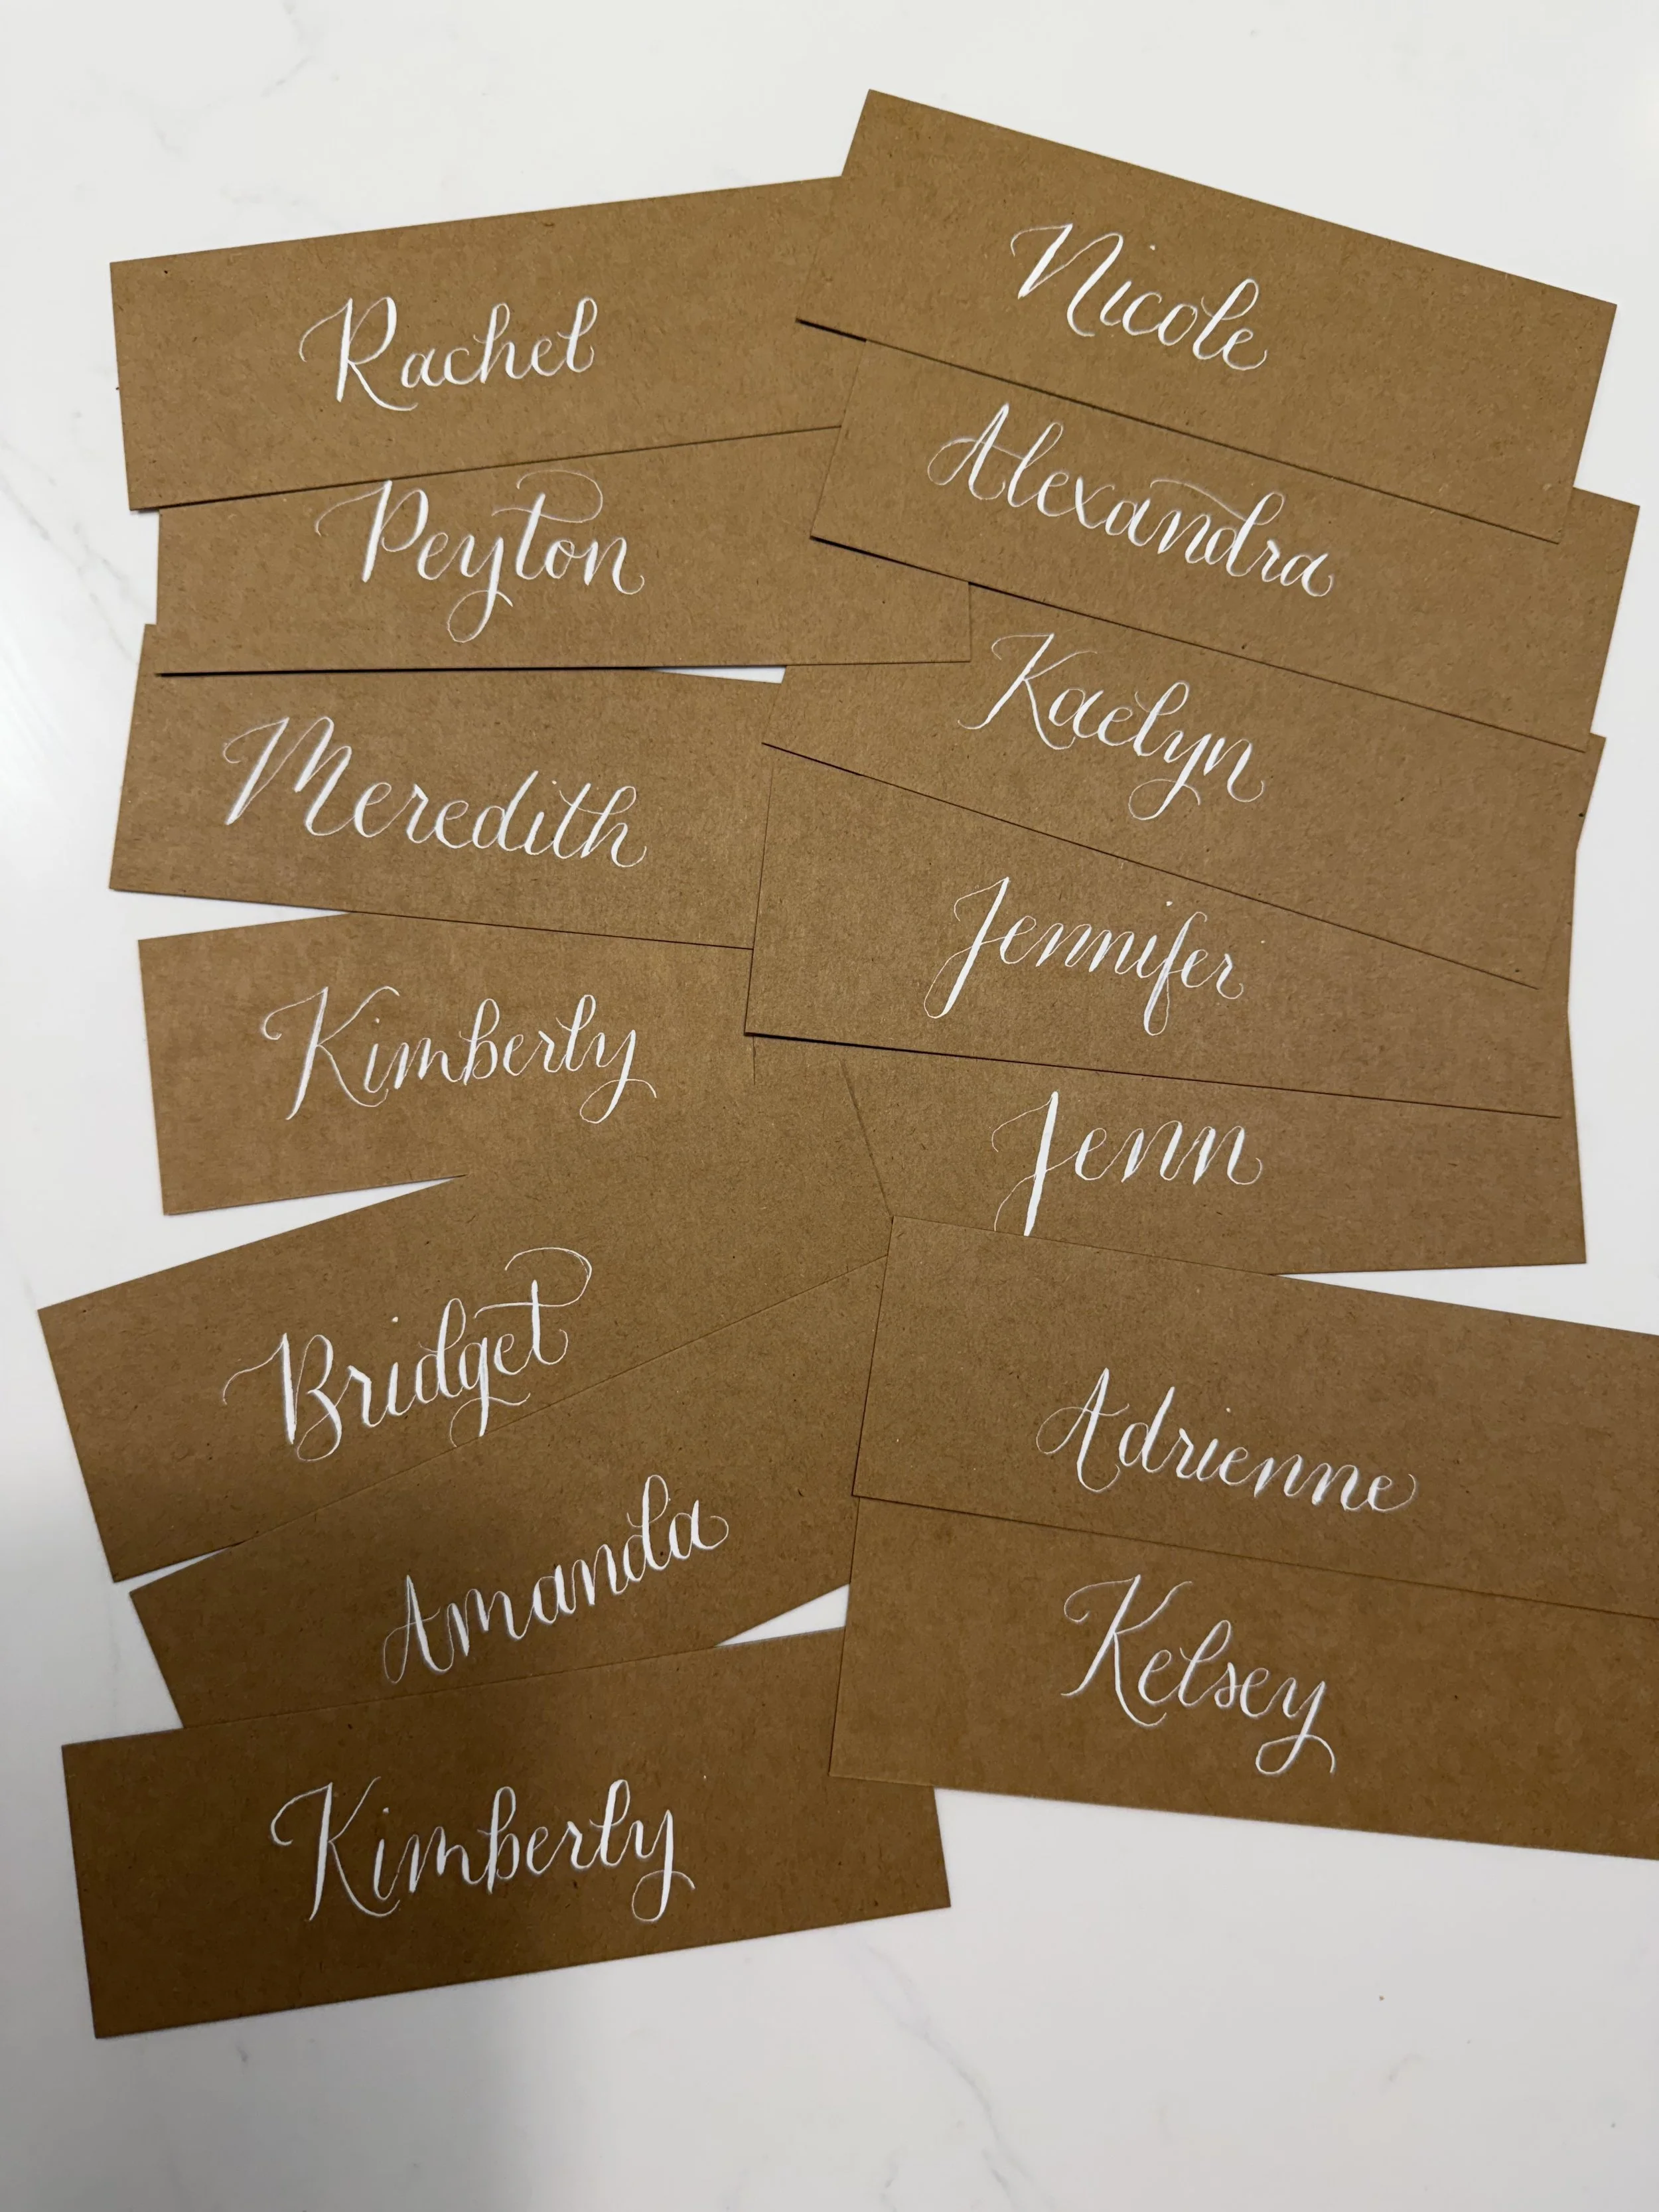 Rachel
Peyton
Meredith
Kimberly
Bridget
Amanda
Kimberly
Nicole
Alexandra
Kaelyn
Jennifer
Jenn
Adrienne
Kelsey